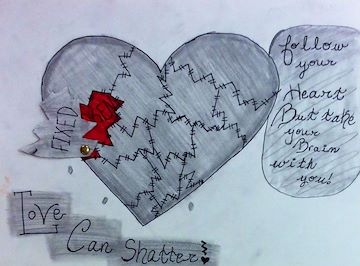 follow
your
Heart
But take
your
Brain
with
you!
FIXED
Love
Can Shatter